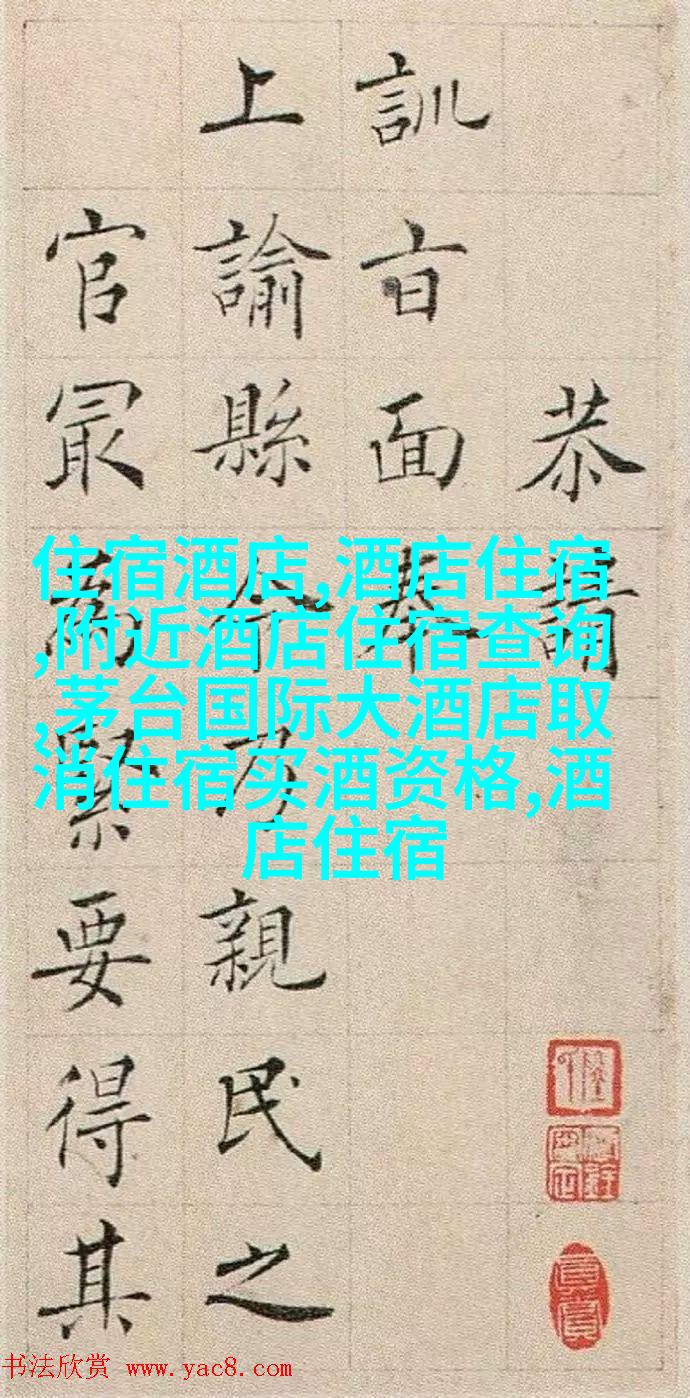 恭請
訓旨面奉
上諭縣令乃親民之
官冣為緊要得其
住宿酒店,酒店住宿
,附近酒店住宿查询
,茅台国际大酒店取
消住宿买酒资格,酒
店住宿
书法欣赏 www.yac8.com